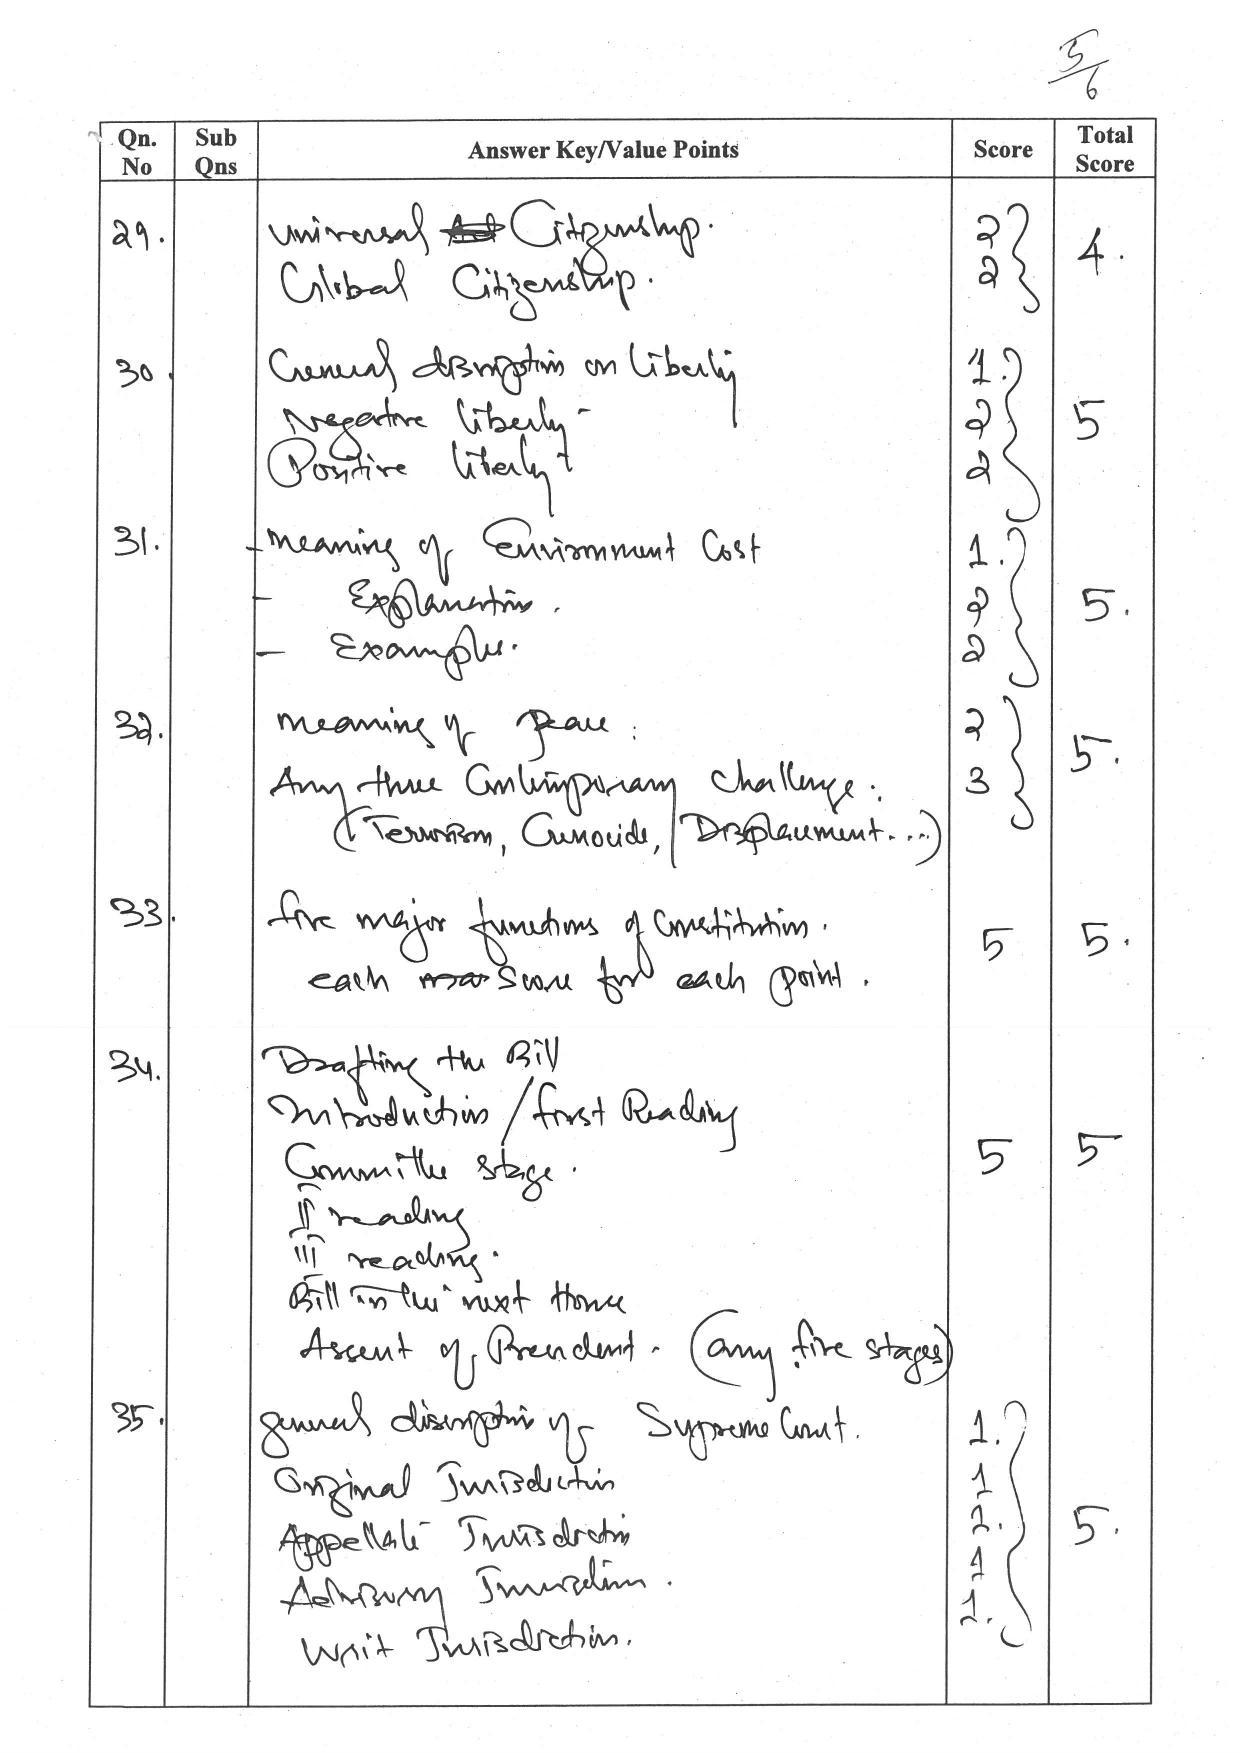 5/6
Qn. No Sub Qns Answer Key/Value Points Score Total Score
29. Universal Citizenship. 2
Global Citizenship. 2 4.
30. General discription on liberty 1.
Negative liberty - 2 5
Positive liberty 2
31. - meaning of Environment Cost 1.
- Explanation. 2 5.
- Example. 2
32. meaning of peace. 2
Any three Contemporary challenge. 3 5.
(Terrorism, Genocide, Displacement....)
33. five major functions of Constitution. 5 5.
each score for each point.
34. Drafting the Bill
Introduction / first Reading
Committee stage. 5 5
II reading
III reading.
Bill in the next House
Assent of President. (any five stages)
35. general discription of Supreme Court. 1.
Original Jurisdiction 1
Appellate Jurisdiction 1. 5.
Advisory Jurisdiction. 1
Writ Jurisdiction. 1.